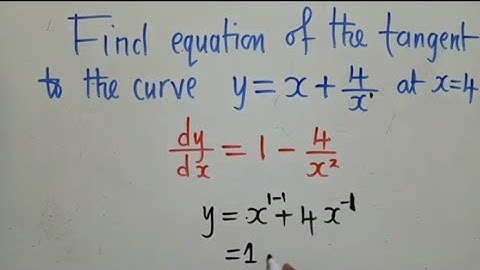 Find equation of the tangent
to the curve y = x + 4/x¹ at x=4
dy/dx = 1 - 4/x²
y = x¹⁻¹ + 4x⁻¹
= 1